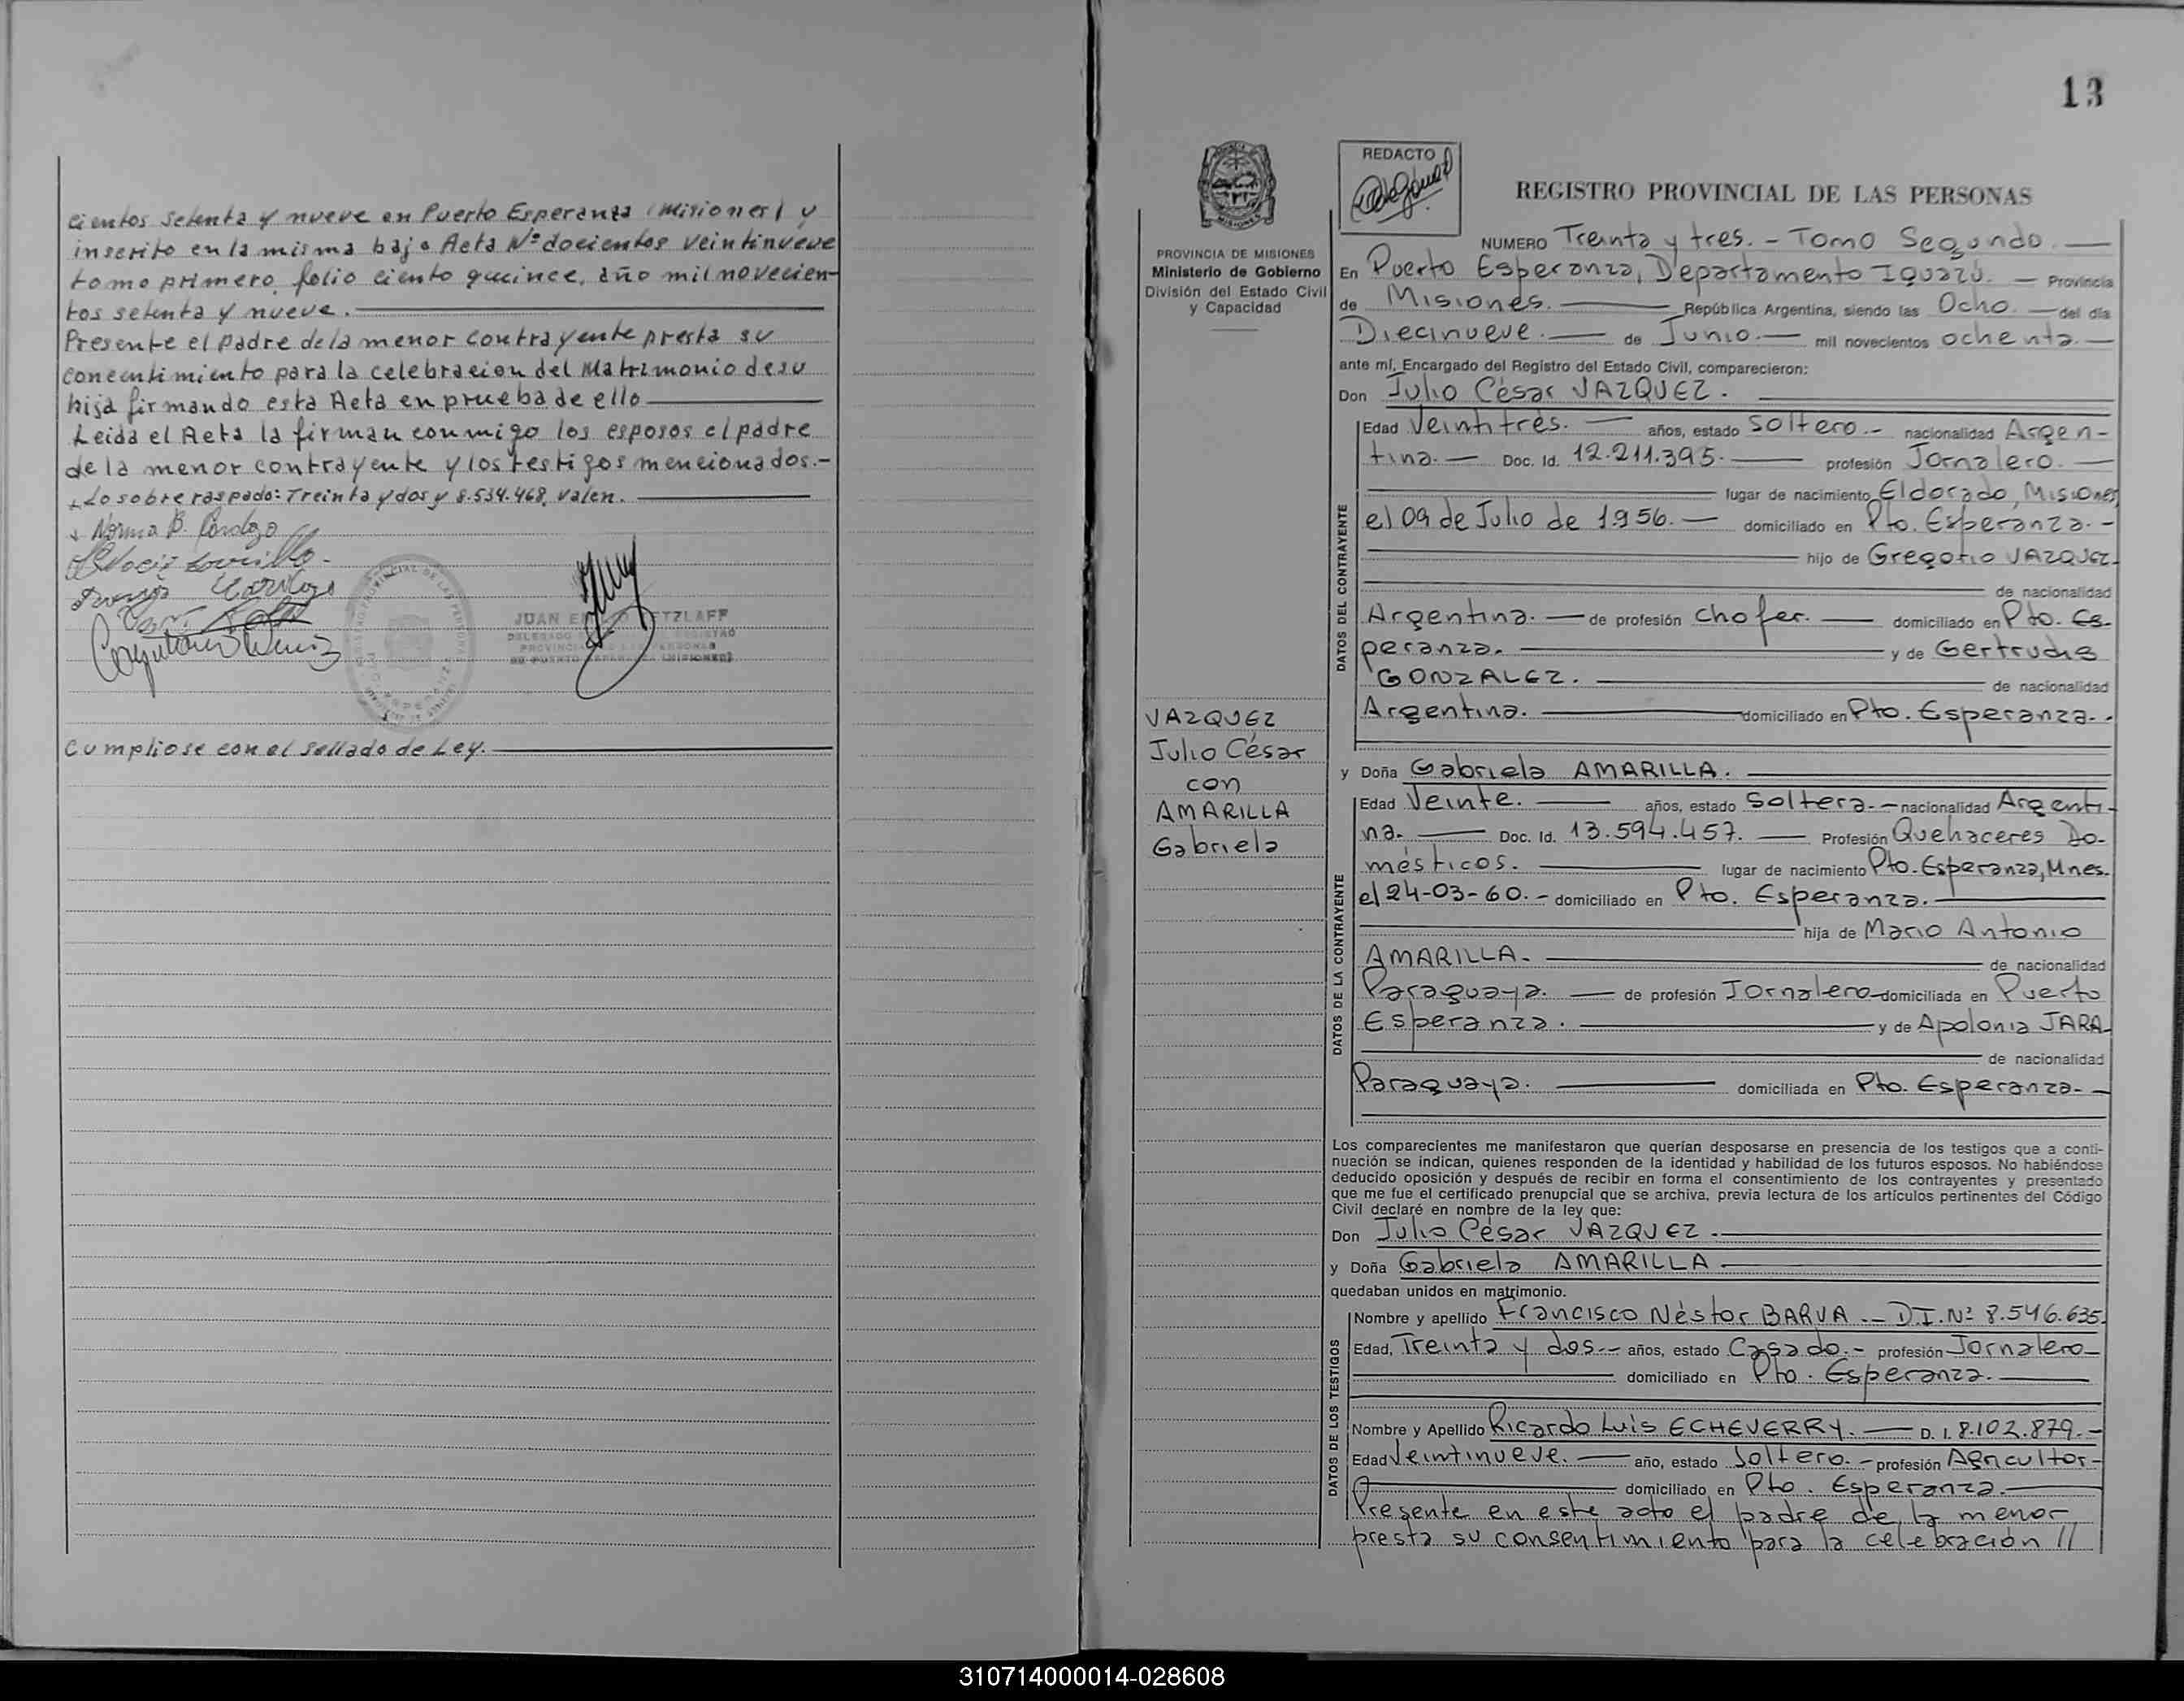 cientos setenta y nueve en Puerto Esperanza (Misiones) y
inscrito en la misma bajo Acta Nº docientos veintinueve
tomo primero, folio ciento quince, año mil novecien-
tos setenta y nueve.
Presente el padre de la menor contrayente presta su
concentimiento para la celebracion del Matrimonio de su
hija firmando esta Acta en prueba de ello
Leida el Acta la firman conmigo los esposos el padre
de la menor contrayente y los testigos mencionados.-
Lo sobre raspado: Treinta y dos y 8.534.468, valen.
Norma B. Cardozo
JUAN
Cumpliose con el sellado de Ley.
13
PROVINCIA DE MISIONES
Ministerio de Gobierno
División del Estado Civil
y Capacidad
VAZQUEZ
Julio César
con
AMARILLA
Gabriela
REDACTO
REGISTRO PROVINCIAL DE LAS PERSONAS
NUMERO Treinta y tres. - Tomo Segundo.
En Puerto Esperanza, Departamento Iguazú. Provincia
de Misiones. República Argentina, siendo las Ocho. del día
Diecinueve. de Junio. mil novecientos ochenta.
ante mí, Encargado del Registro del Estado Civil, comparecieron:
Don Julio César VAZQUEZ.
DATOS DEL CONTRAYENTE
Edad Veintitrés. años, estado Soltero.- nacionalidad Argen-
tina. Doc. Id. 12.211.395. profesión Jornalero.
lugar de nacimiento Eldorado, Misiones
el 09 de Julio de 1956. domiciliado en Pto. Esperanza.-
hijo de Gregorio VAZQUEZ.
de nacionalidad
Argentina. de profesión Chofer. domiciliado en Pto. Es-
peranza. y de Gertrudis
GONZALEZ. de nacionalidad
Argentina. domiciliado en Pto. Esperanza.
y Doña Gabriela AMARILLA.
DATOS DE LA CONTRAYENTE
Edad Veinte. años, estado Soltera.- nacionalidad Argenti-
na. Doc. Id. 13.594.457. Profesión Quehaceres Do-
mésticos. lugar de nacimiento Pto. Esperanza, Mnes.
el 24-03-60.- domiciliado en Pto. Esperanza.
hija de Mario Antonio
AMARILLA. de nacionalidad
Paraguaya. de profesión Jornalero domiciliada en Puerto
Esperanza. y de Apolonia JARA
de nacionalidad
Paraguaya. domiciliada en Pto. Esperanza.
Los comparecientes me manifestaron que querían desposarse en presencia de los testigos que a conti-
nuación se indican, quienes responden de la identidad y habilidad de los futuros esposos. No habiéndose
deducido oposición y después de recibir en forma el consentimiento de los contrayentes y presentado
que me fue el certificado prenupcial que se archiva, previa lectura de los artículos pertinentes del Código
Civil declaré en nombre de la ley que:
Don Julio César VAZQUEZ.
y Doña Gabriela AMARILLA
quedaban unidos en matrimonio.
DATOS DE LOS TESTIGOS
Nombre y apellido Francisco Néstor BARVA.- D.I.Nº 8.546.635.
Edad, Treinta y dos.- años, estado Casado.- profesión Jornalero
domiciliado en Pto. Esperanza.
Nombre y Apellido Ricardo Luis ECHEVERRY. D.I. 8.102.879.-
Edad Veintinueve. año, estado Soltero.- profesión Agricultor-
domiciliado en Pto. Esperanza.
Presente en este acto el padre de la menor
presta su consentimiento para la celebración //
310714000014-028608